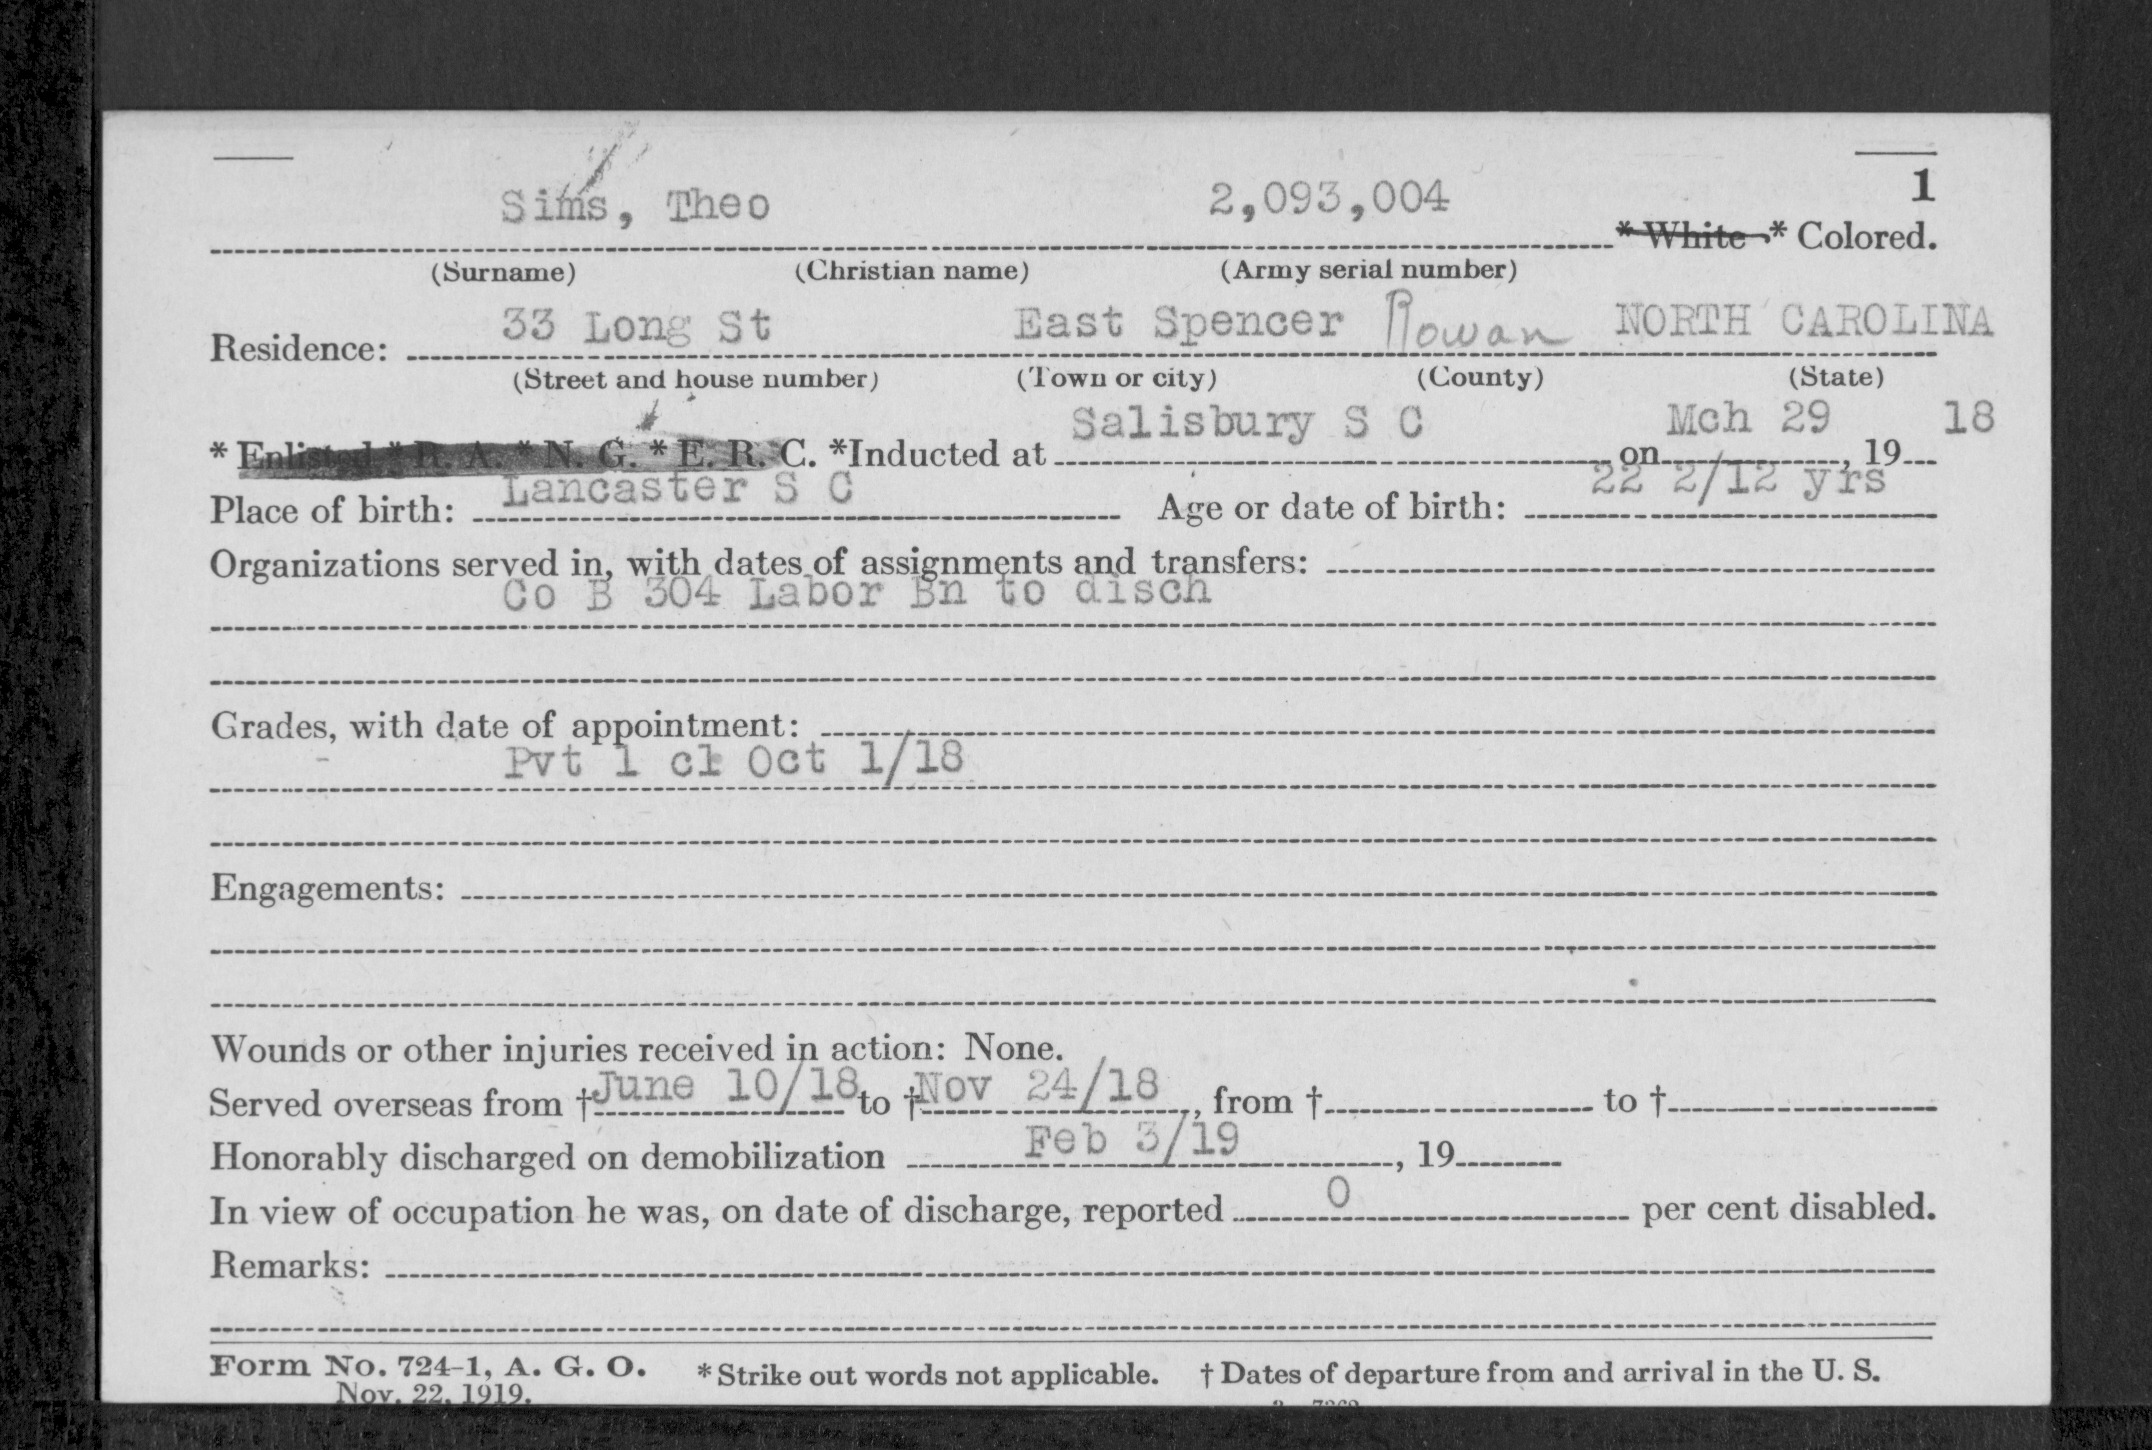 1
Sims, Theo 2,093,004 * White * Colored.
(Surname) (Christian name) (Army serial number)
Residence: 33 Long St East Spencer Rowan NORTH CAROLINA
(Street and house number) (Town or city) (County) (State)
* Enlisted * R. A. * N. G. * E. R. C. *Inducted at Salisbury S C on Mch 29, 19 18
Place of birth: Lancaster S C Age or date of birth: 22 2/12 yrs
Organizations served in, with dates of assignments and transfers:
Co B 304 Labor Bn to disch
Grades, with date of appointment:
Pvt 1 cl Oct 1/18
Engagements:
Wounds or other injuries received in action: None.
Served overseas from † June 10/18 to † Nov 24/18, from † to †
Honorably discharged on demobilization Feb 3/19, 19
In view of occupation he was, on date of discharge, reported 0 per cent disabled.
Remarks:
Form No. 724-1, A. G. O. * Strike out words not applicable. † Dates of departure from and arrival in the U. S.
Nov. 22, 1919.